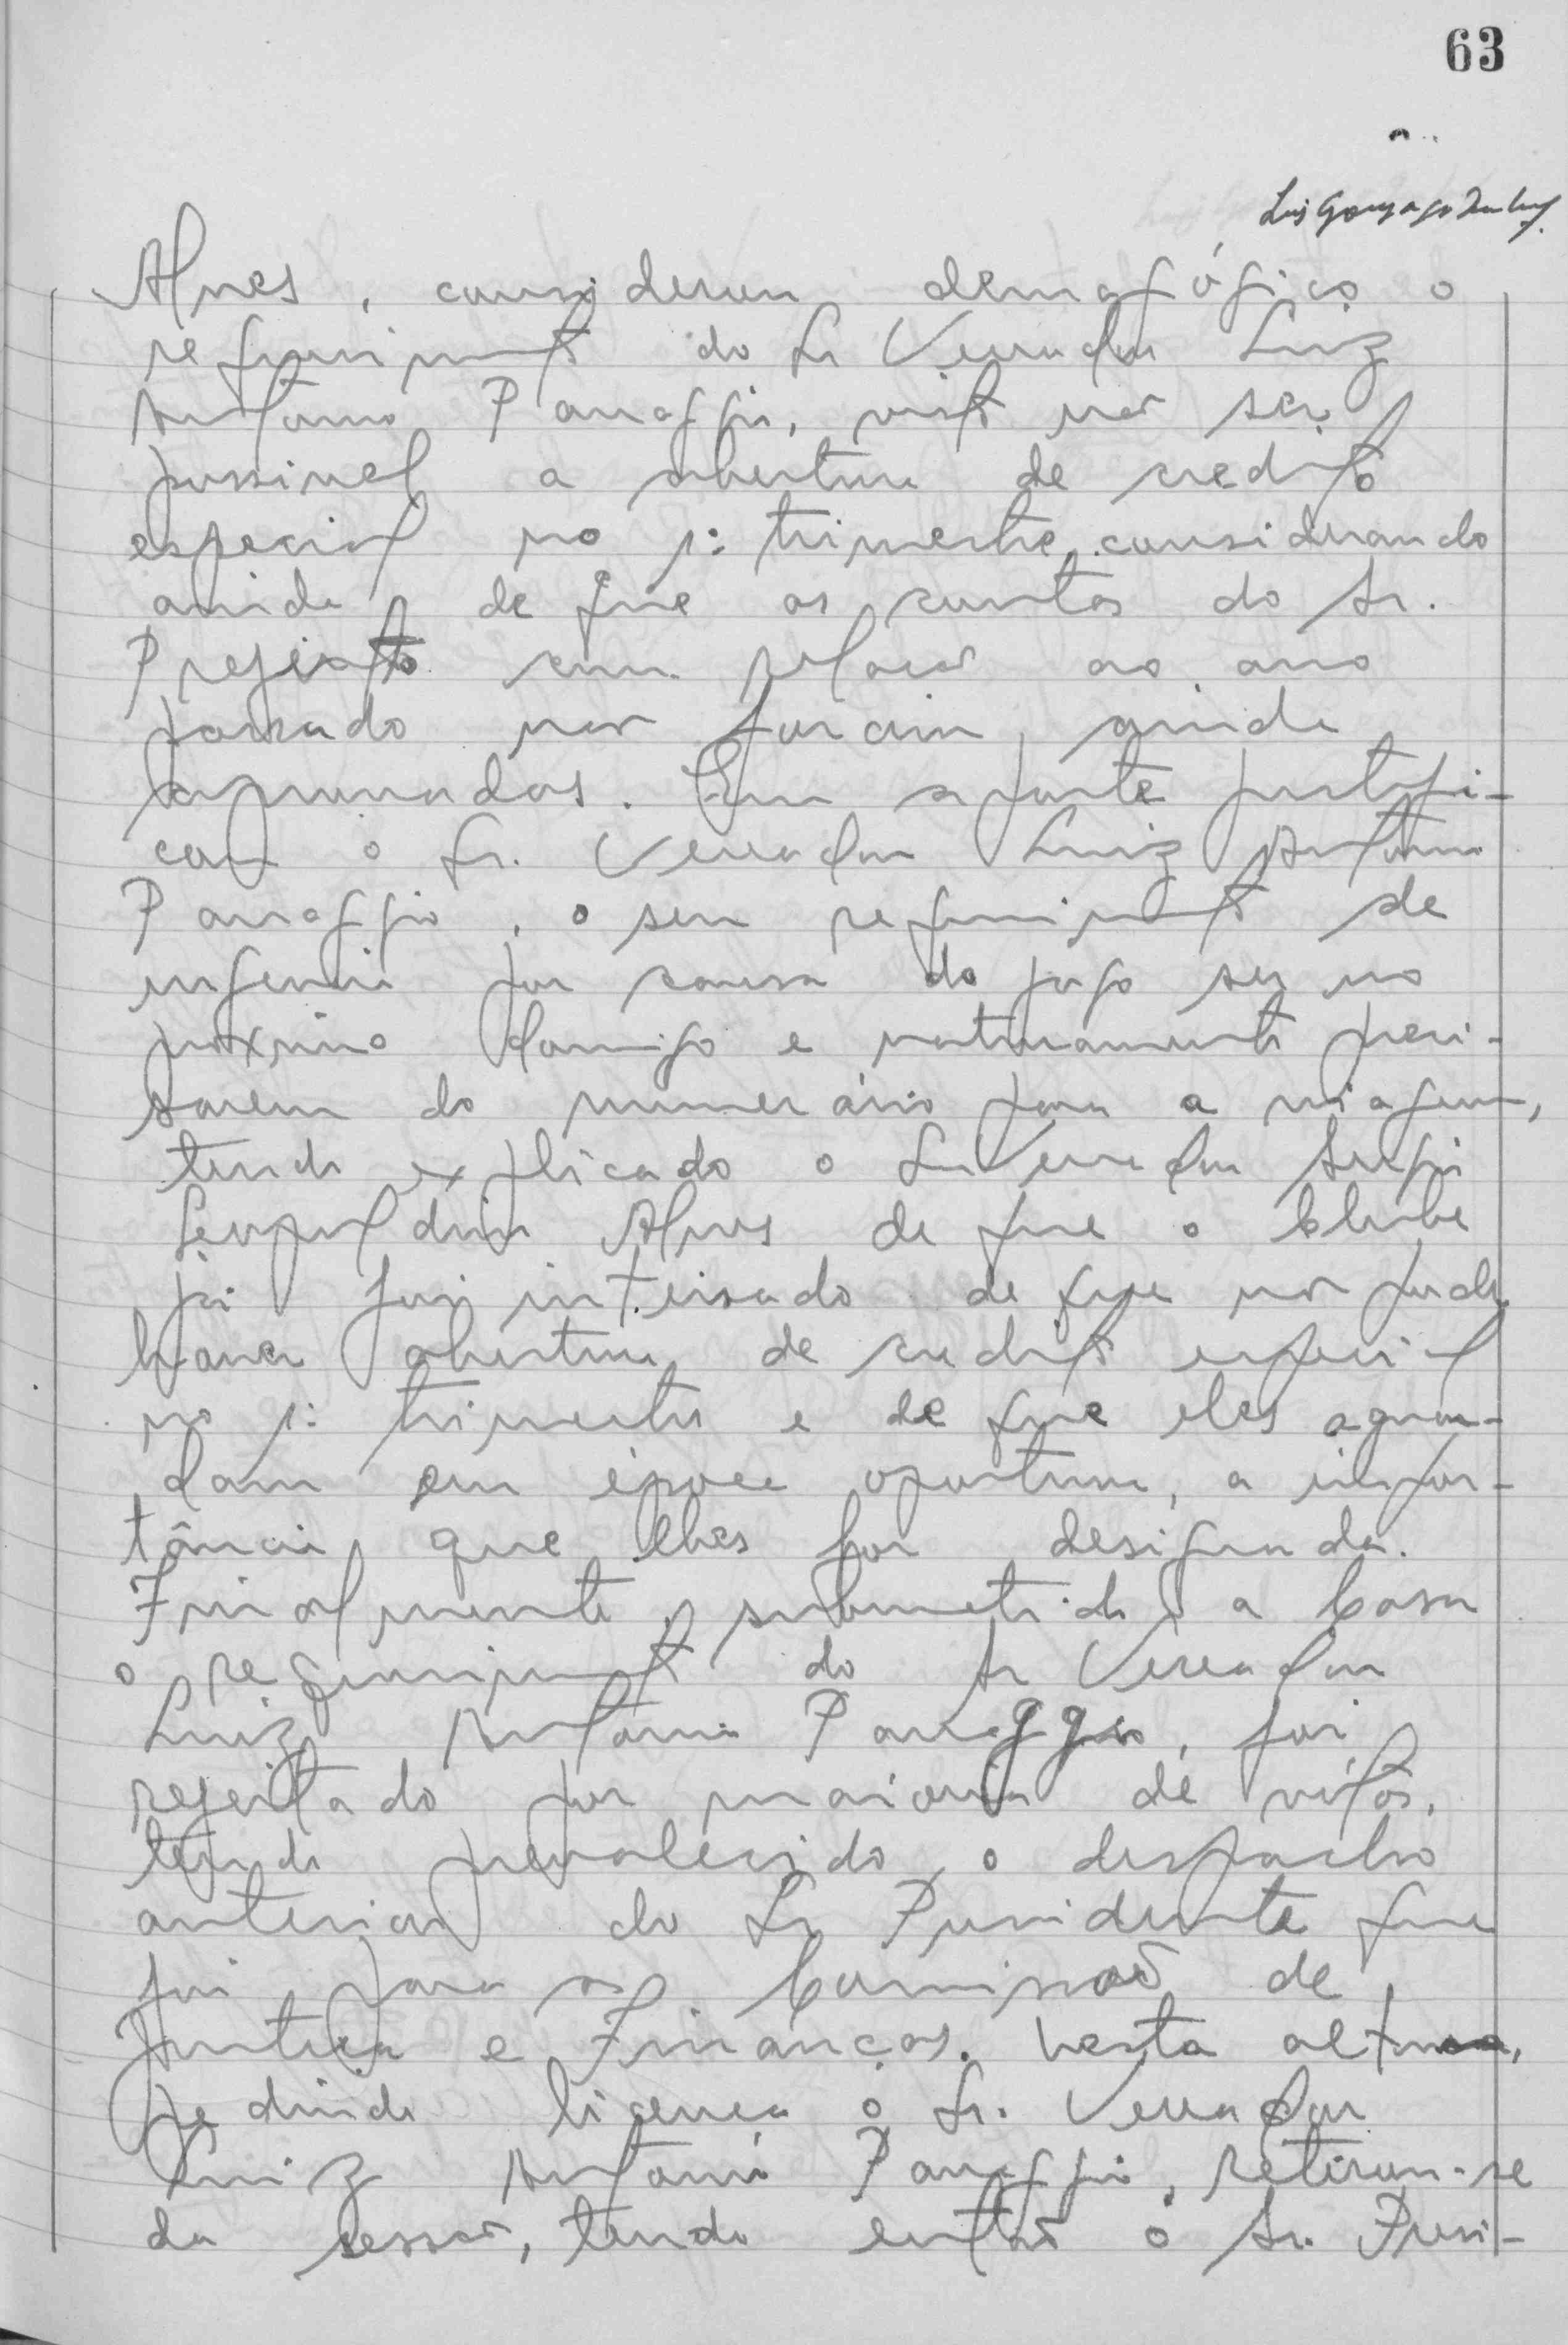 63
Alves, considerou demagógico o
requerimento do Sr Vereador Luiz
Antonio Panaggio, visto não ser
possivel a abertura de credito
especial no 1º trimestre, considerando
ainda, de que as contas do Sr.
Prefeito com relação ao ano
passado não foram ainda
. Em aparte justifi-
cou o Sr. Vereador Luiz Antonio
Panaggio, o seu requerimento de
urgencia por causa do jogo ser no
próximo domingo e naturalmente preci-
sarem do numerário para a viagem,
tendo explicado o Sr Vereador Sergio
Leopoldino Alves de que o Clube
já foi inteirado de que não pode
haver abertura de credito especial
no 1º trimestre e de que eles aguar-
dam em época oportuna, a impor-
tância que lhes for designada.
Finalmente, submetido a Casa
o requerimento do Sr Vereador
Luiz Antonio Panaggio, foi
rejeitado por maioria de votos,
tendo prevalecido o despacho
anterior do Sr Presidente que
foi para as Comissão de
Justiça e Finanças. Nesta altura,
pedindo licença o Sr. Vereador
Luiz Antonio Panaggio, retirou-se
da sessão, tendo então o Sr. Presi-